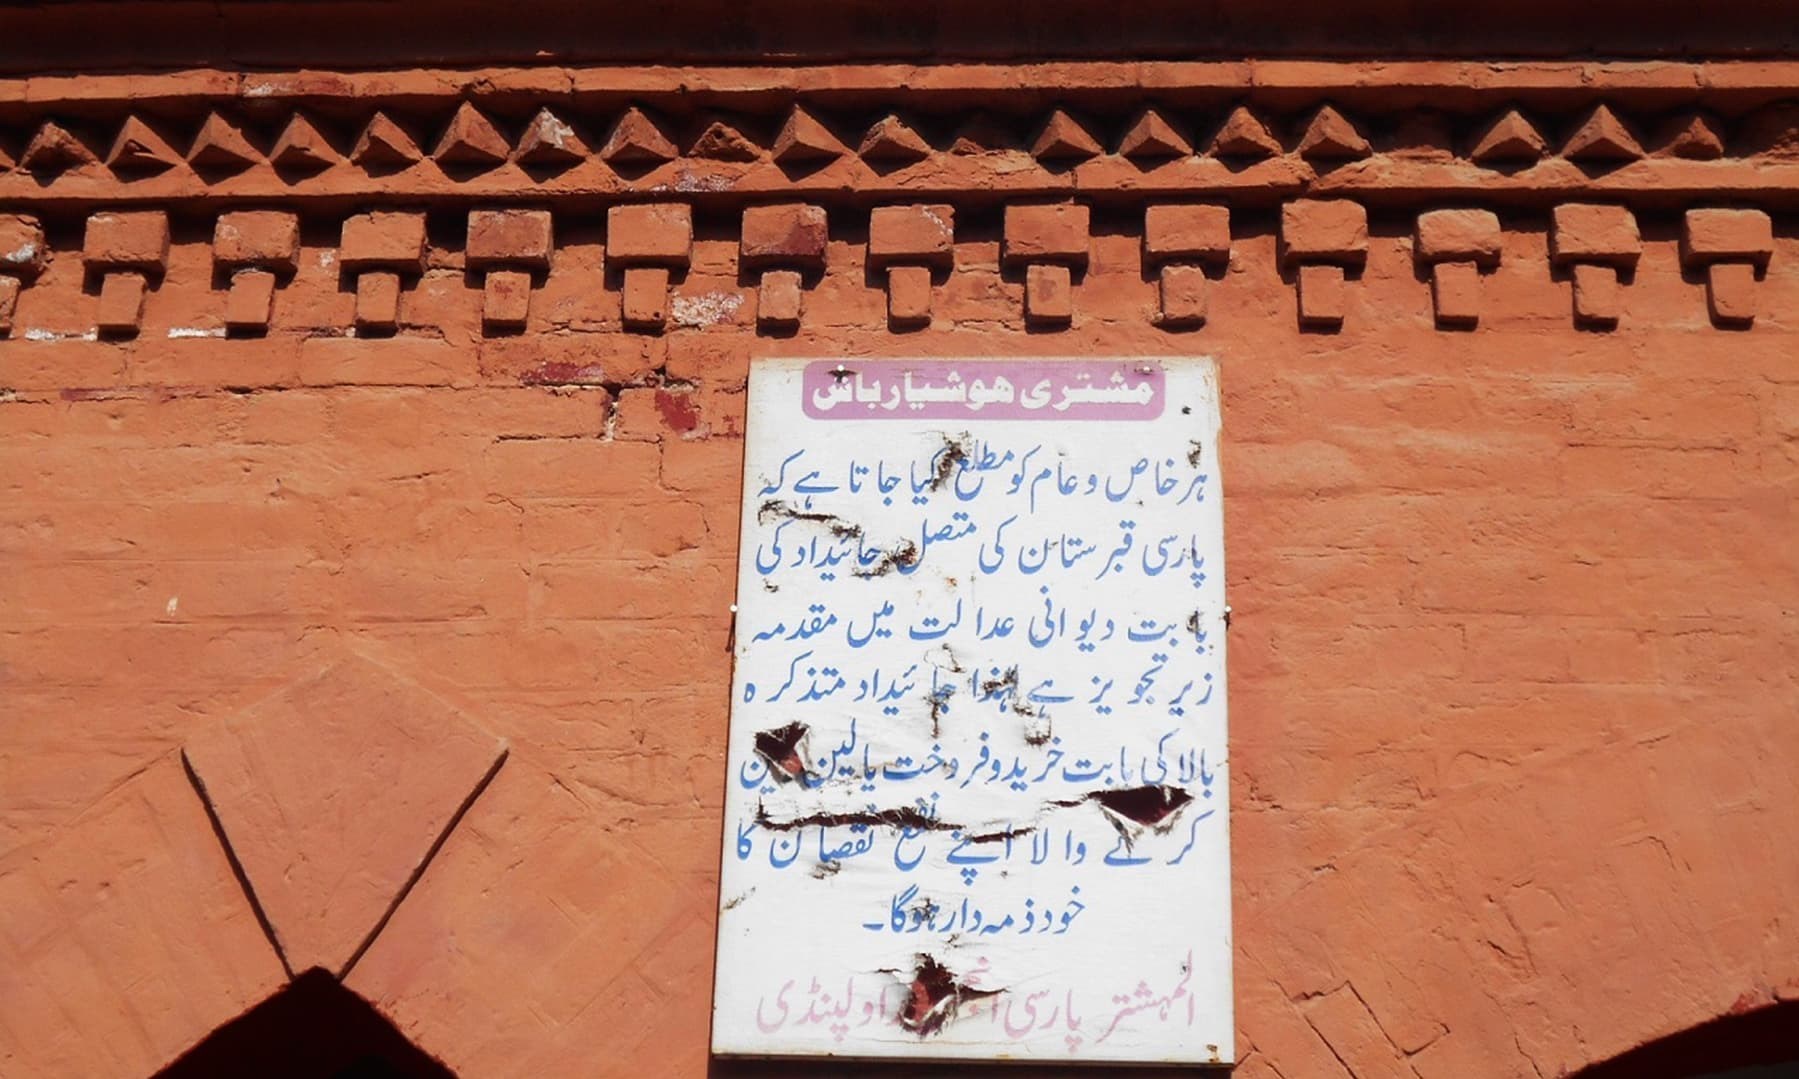 مشتری ہوشیار باش
ہر خاص و عام کو مطلع کیا جاتا ہے کہ
پارسی قبرستان کی متصل جائیداد کی
بابت دیوانی عدالت میں مقدمہ
زیر تجویز ہے لہٰذا جائیداد متذکرہ
بالا کی بابت خرید و فروخت یا لین دین
کرنے والا اپنے نفع نقصان کا
خود ذمہ دار ہوگا۔
المشتہر پارسی انجمن راولپنڈی